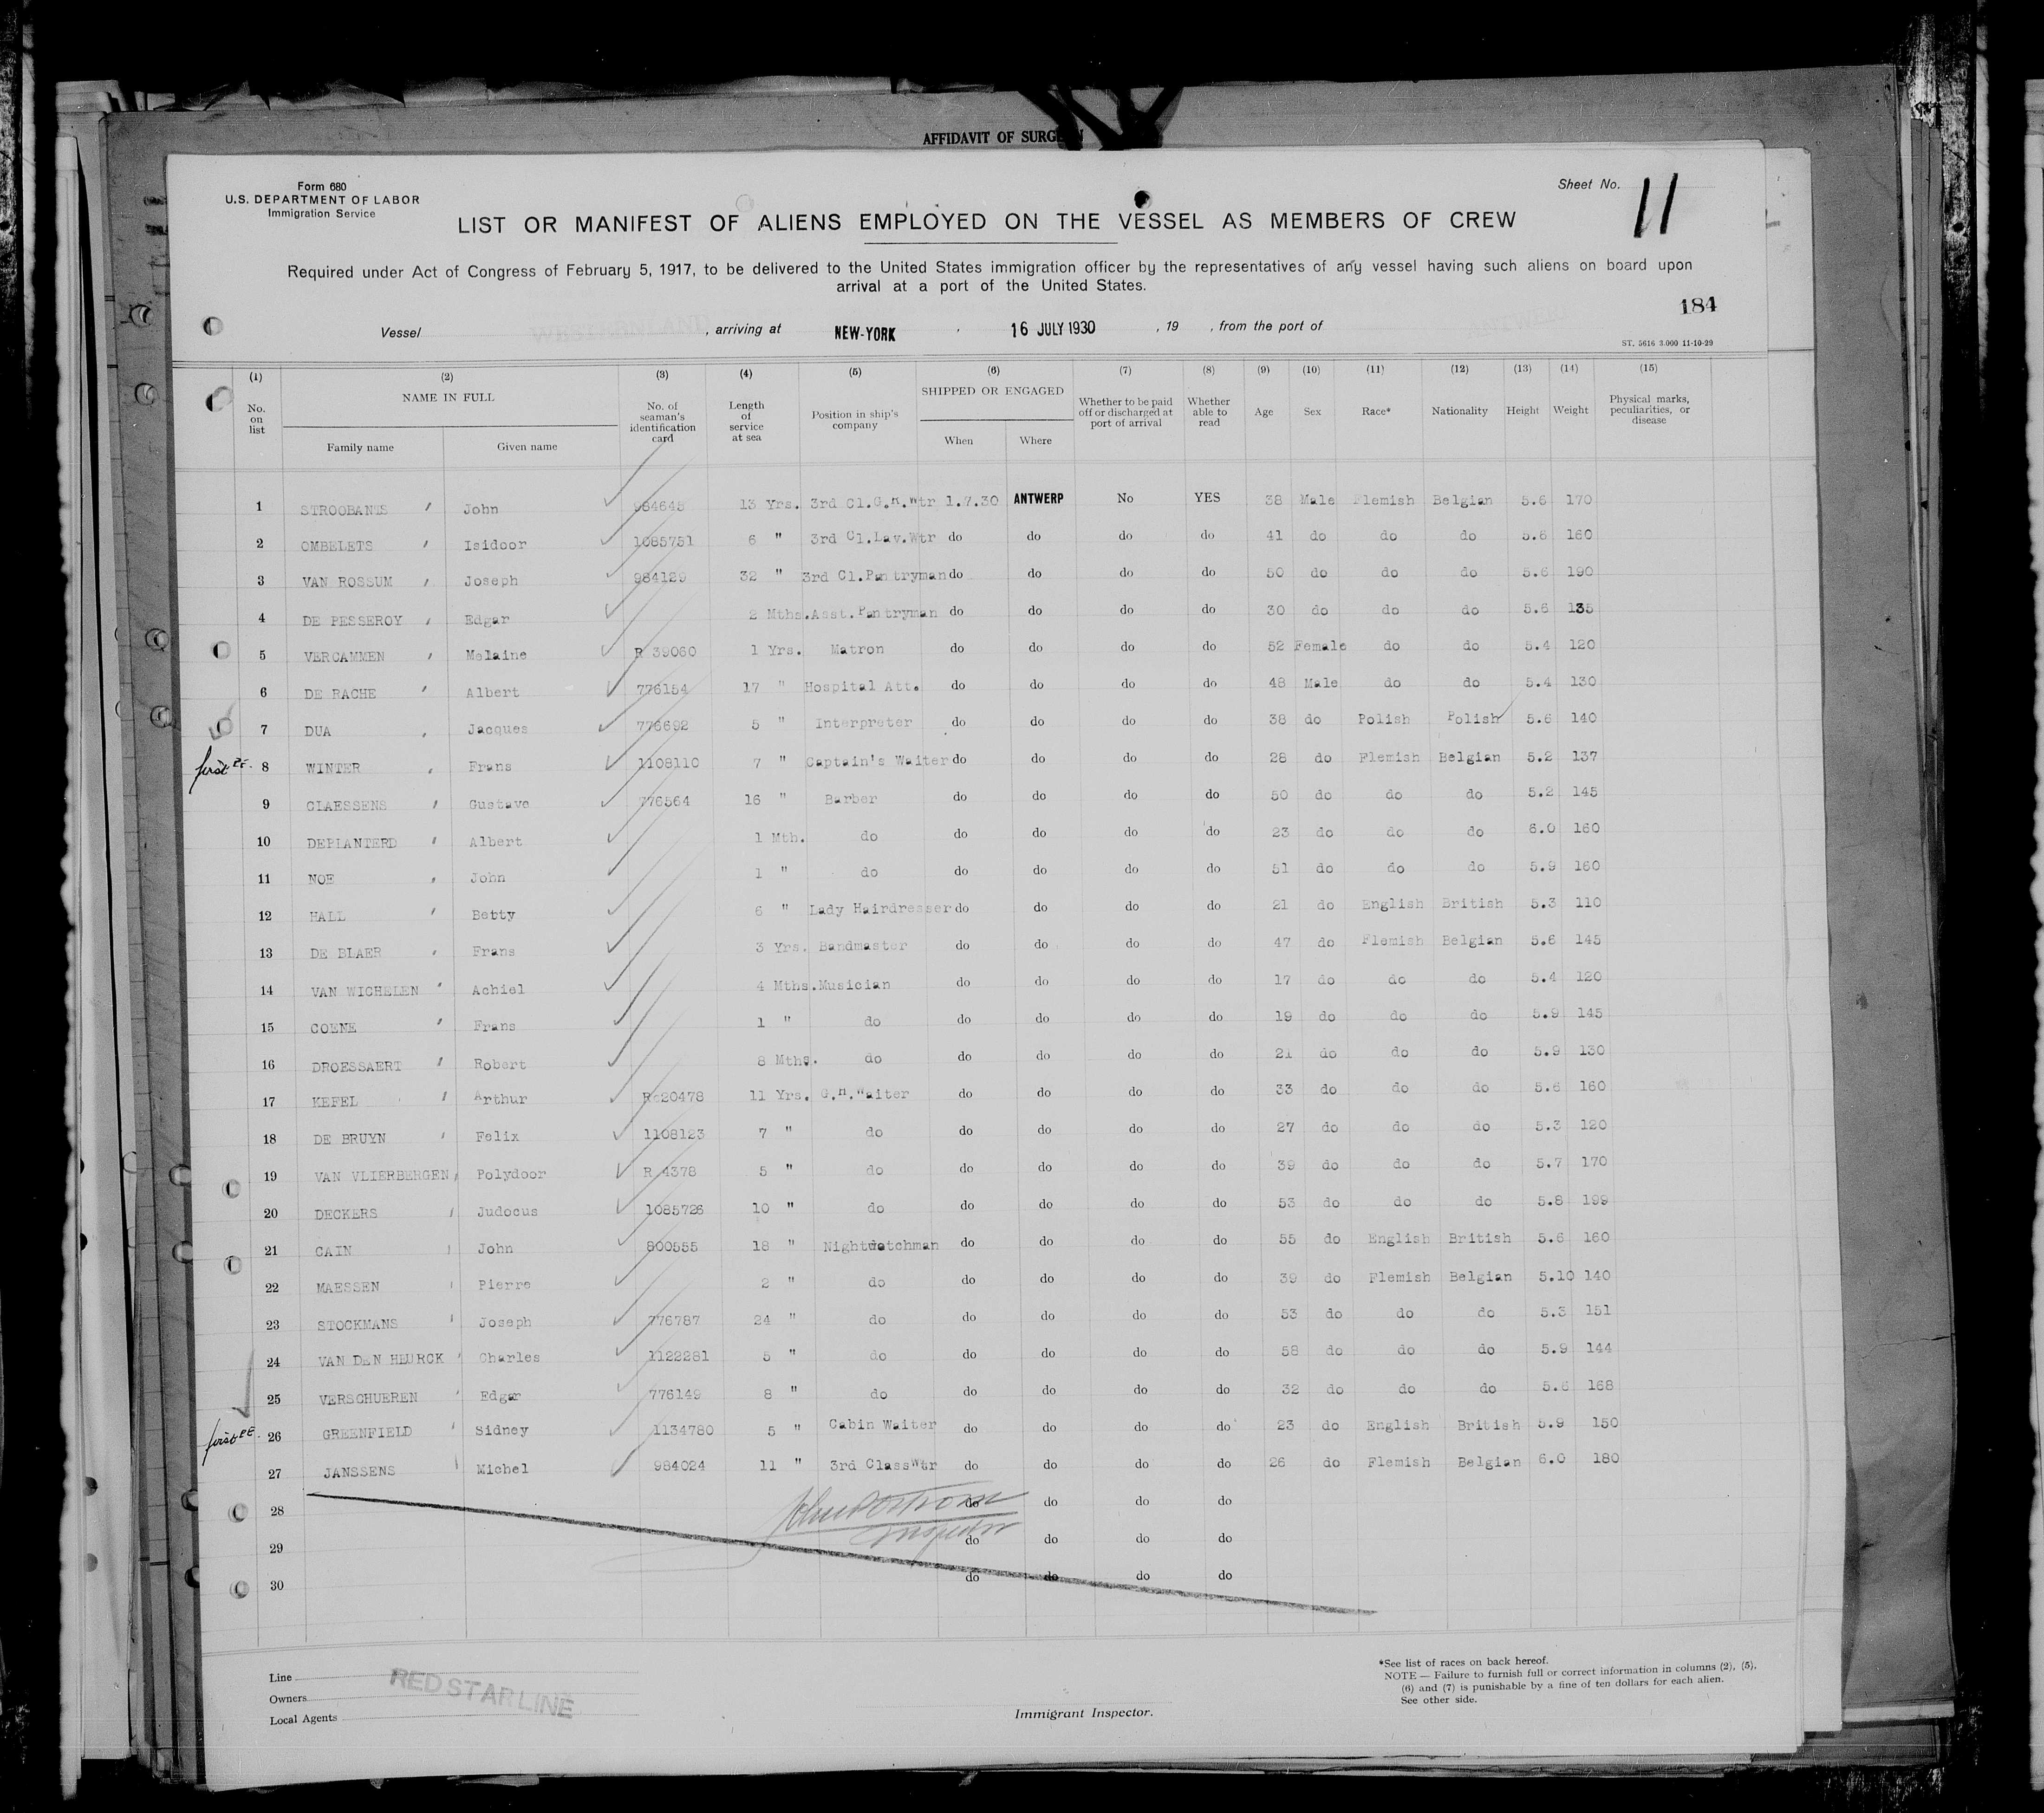 AFFIDAVIT OF SURGEON
Form 680
U.S. DEPARTMENT OF LABOR
Immigration Service
Sheet No. 11
LIST OR MANIFEST OF ALIENS EMPLOYED ON THE VESSEL AS MEMBERS OF CREW
Required under Act of Congress of February 5, 1917, to be delivered to the United States immigration officer by the representatives of any vessel having such aliens on board upon
arrival at a port of the United States.
184
Vessel , arriving at NEW-YORK , 16 JULY 1930 , 19 , from the port of
ST. 5616 3.000 11-10-29
(1) (2) (3) (4) (5) (6) (7) (8) (9) (10) (11) (12) (13) (14) (15)
No. on list NAME IN FULL Family name Given name No. of seaman's identification card Length of service at sea Position in ship's company SHIPPED OR ENGAGED When Where Whether to be paid off or discharged at port of arrival Whether able to read Age Sex Race* Nationality Height Weight Physical marks, peculiarities, or disease
1 STROOBANTS John 984648 13 Yrs. 3rd Cl.G.H.Wtr 1.7.30 ANTWERP No YES 38 Male Flemish Belgian 5.6 170
2 OMBELETS Isidoor 1085751 6 " 3rd Cl.Lav.Wtr do do do do 41 do do do 5.8 160
3 VAN ROSSUM Joseph 984129 32 " 3rd Cl.Pantryman do do do do 50 do do do 5.6 190
4 DE PESSEROY Edgar 2 Mths. Asst.Pantryman do do do do 30 do do do 5.6 135
5 VERCAMMEN Melaine R 39060 1 Yrs. Matron do do do do 52 Female do do 5.4 120
6 DE RACHE Albert 776154 17 " Hospital Att. do do do do 48 Male do do 5.4 130
7 DUA Jacques 776692 5 " Interpreter do do do do 38 do Polish Polish 5.6 140
first 8 WINTER Frans 1108110 7 " Captain's Waiter do do do do 28 do Flemish Belgian 5.2 137
9 CLAESSENS Gustave 776564 16 " Barber do do do do 50 do do do 5.2 145
10 DEPLANTERD Albert 1 Mth. do do do do do 23 do do do 6.0 160
11 NOE John 1 " do do do do do 51 do do do 5.9 160
12 HALL Betty 6 " Lady Hairdresser do do do do 21 do English British 5.3 110
13 DE BLAER Frans 3 Yrs. Bandmaster do do do do 47 do Flemish Belgian 5.6 145
14 VAN WICHELEN Achiel 4 Mths. Musician do do do do 17 do do do 5.4 120
15 COENE Frans 1 " do do do do do 19 do do do 5.9 145
16 DROESSAERT Robert 8 Mths. do do do do do 21 do do do 5.9 130
17 KEFEL Arthur Re20478 11 Yrs. G.H.Waiter do do do do 33 do do do 5.6 160
18 DE BRUYN Felix 1108123 7 " do do do do do 27 do do do 5.3 120
19 VAN VLIERBERGEN Polydoor R 4378 5 " do do do do do 39 do do do 5.7 170
20 DECKERS Judocus 1085726 10 " do do do do do 53 do do do 5.8 199
21 CAIN John 800555 18 " Nightwatchman do do do do 55 do English British 5.6 160
22 MAESSEN Pierre 2 " do do do do do 39 do Flemish Belgian 5.10 140
23 STOCKMANS Joseph 776787 24 " do do do do do 53 do do do 5.3 151
24 VAN DEN HEURCK Charles 1122281 5 " do do do do do 58 do do do 5.9 144
25 VERSCHUEREN Edgar 776149 8 " do do do do do 32 do do do 5.6 168
first 26 GREENFIELD Sidney 1134780 5 " Cabin Waiter do do do do 23 do English British 5.9 150
27 JANSSENS Michel 984024 11 " 3rd ClassWtr do do do do 26 do Flemish Belgian 6.0 180
28 do do do do
29 Inspector do do do do
30 do do do do
Line
Owners
Local Agents
RED STAR LINE
Immigrant Inspector.
*See list of races on back hereof.
NOTE — Failure to furnish full or correct information in columns (2), (5),
(6) and (7) is punishable by a fine of ten dollars for each alien.
See other side.